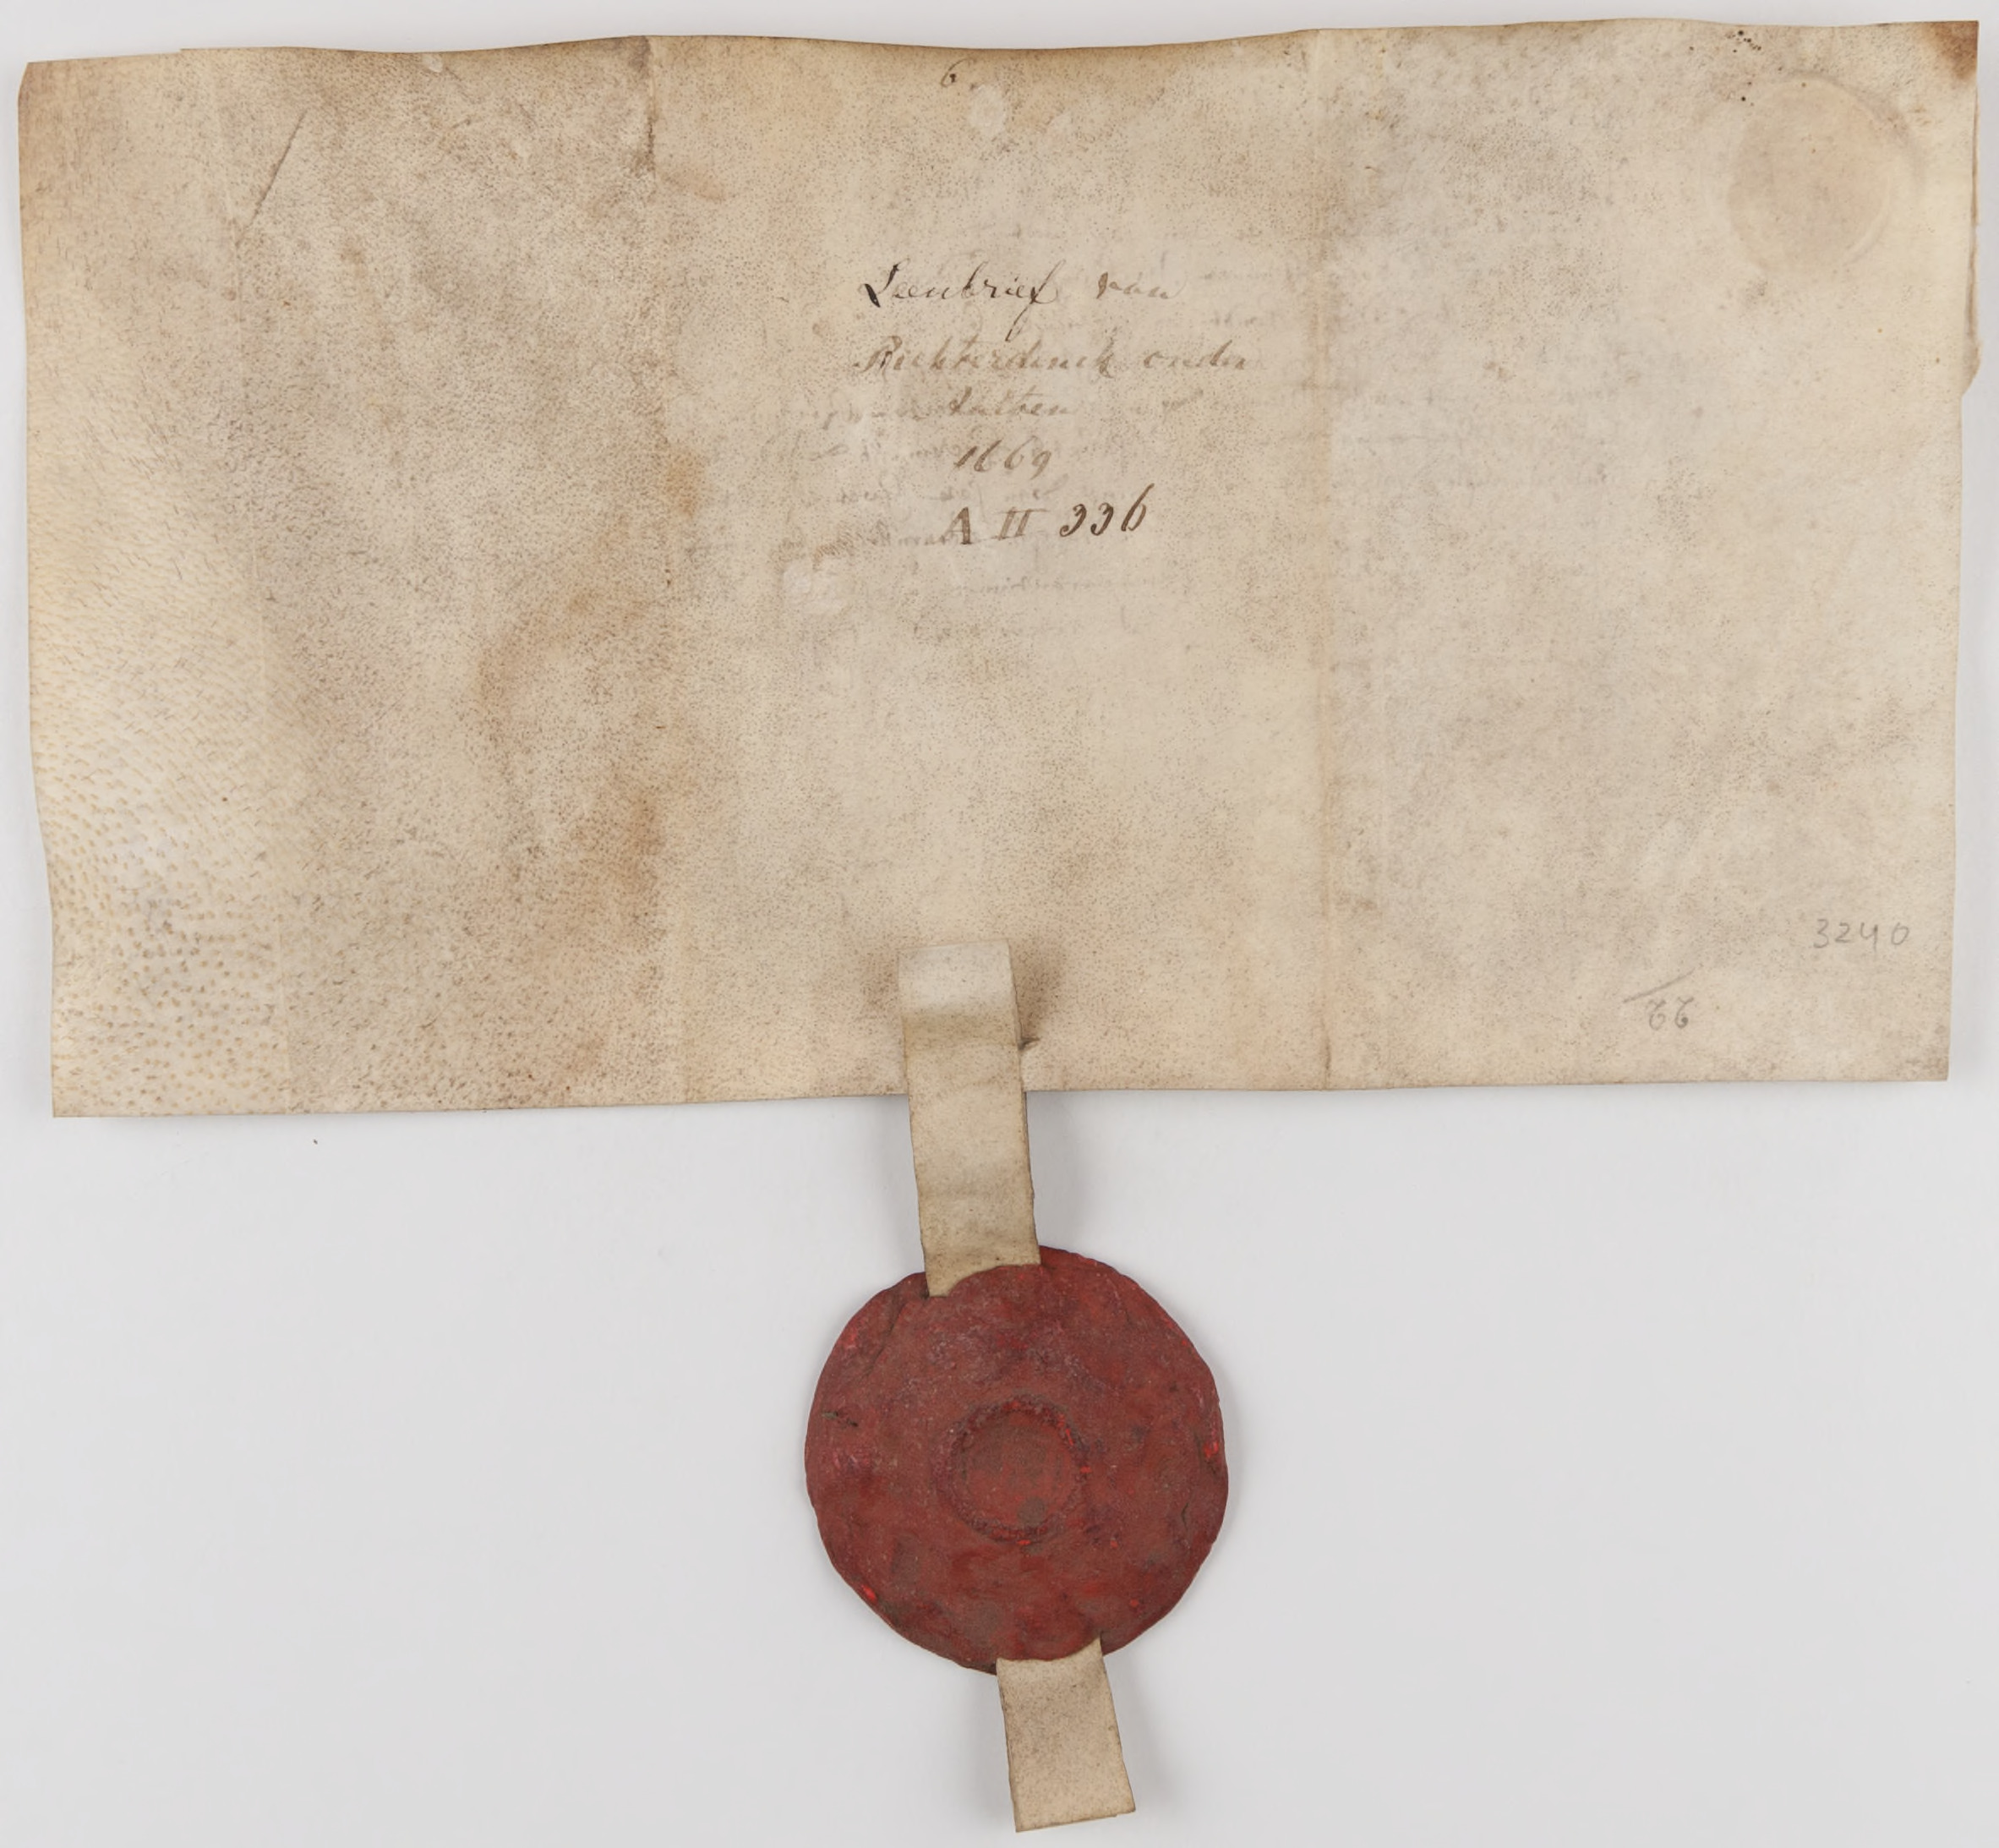 6.
Leenbrief van
Richterdinck onder
Aalten
1669
A II 336
3240